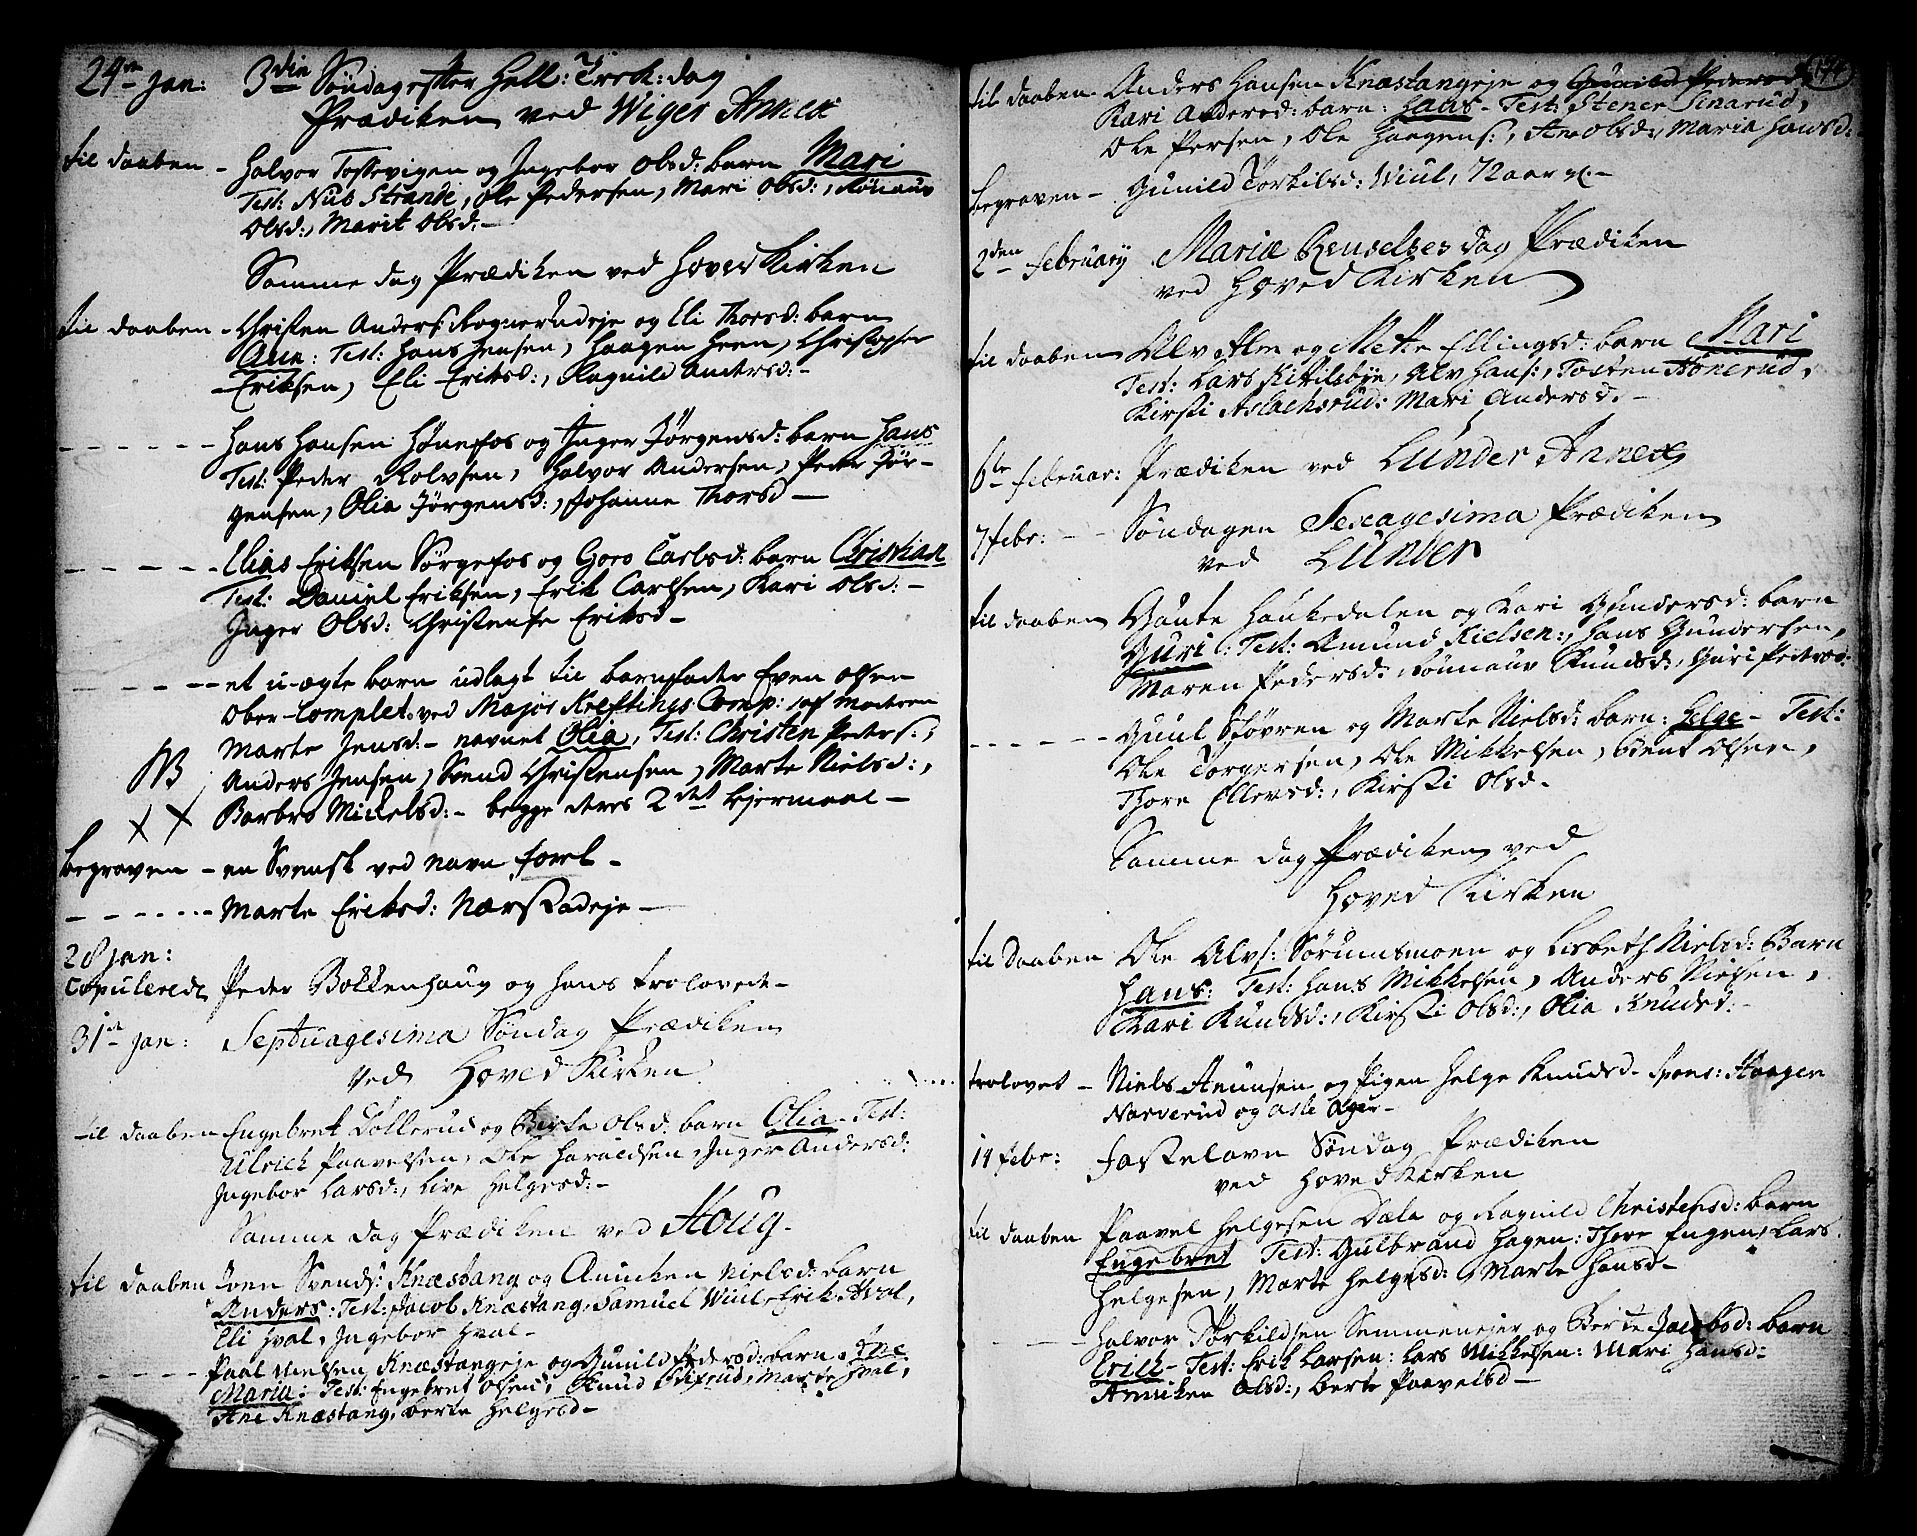 24de Jan: 3die Søndag efter Hell: Trek: dag
Prædiken ved Wiger Annex
til daaben - Halvor Tossevigen og Ingebor Olsd: barn Mari
Test: Nub Strande, Ole Pedersen, Mari Olsd:, Rønauv
Olsd:, Marit Olsd: -
Samme dag Prædiken ved Hoved Kirken
til daaben - Christen Anders: Rognerudeje og Eli Thorsd: barn
Ann: Test: Hans Jensen, Haagen Heen, Christopher
Eriksen, Eli Eriksd:, Ragnild Andersd: -
- - - - - - Hans Hansen Hønefos og Inger Jörgensd: barn Hans
Test: Peder Rolvsen, Halvor Andersen, Peder Jör-
gensen, Olia Jörgensd:, Johanne Thorsd -
- - - - - Elias Eriksen Sörgefos og Goro Carlsd: barn Christian
Test: Daniel Eriksen, Erik Carlsen, Kari Olsd: -
Inger Olsd: Christense Eriksd -
- - - - - - et u-ægte barn udlagt til barnfader Even Olsen
Ober-Complet. ved Major Kreftings Comp: af moderen
Marte Jensd: - navnet Olia, Test: Christen Peders:,
NB Anders Jensen, Svend Christensen, Marte Nielsd:,
X X Barbro Mickelsd: - begge deres 2det Lejermaal -
begraven - en Svensk ved navn Forel -
- - - - - - Marte Eriksd: Nærstadeje -
28 Jan:
Copulerede Peder Bokkenhaug og hans trolovede -
31te Jan: Septuagesima Søndag Prædiken
ved Hoved Kirken
til daaben Engebret Lökkerud og Berte Olsd: barn Olia - Test:
Ulrich Paavelsen, Ole Haraldsen, Inger Andersd:
Ingebor Larsd:, Live Helgesd: -
Samme dag Prædiken ved Houg -
til daaben Joen Svends: Knæstang og Anniken Nielsd: barn
Anders: Test: Jacob Knæstang, Samuel Wiul, Erik Hval,
Eli Hval, Ingebor Hval -
- - - - - - Paal Nielsen Knæstangeje og Gunild Pedersd: barn Ane
Maria: Test: Engebret Olsen, Knud, Marte Hval,
Ane Knæstang, Berte Helgesd -
174
til daaben - Anders Hansen Knæstangeje og Gunild Pedersd
Kari Andersd: barn: Hans - Test: Stener Sinarud,
Ole Persen, Ole Haagens:, Ane Olsd:, Maria Hansd: -
begraven - Gunild Torkilsd: Wiul, 72 aar gl: -
2den February Mariæ Renselses dag Prædiken
ved Hoved Kirken
til daaben Alv Alm og Mette Ellingsd: barn Mari
Test: Lars Kittilsbye, Alv Hans:, Tosten Hönerud,
Kirsti Aslachsrud: Mari Andersd: -
6te Februar: Prædiken ved Lunder Annex
7 Febr: - - Søndagen Sexagesima Prædiken
ved Lunder
til daaben Gaute Haukedalen og Kari Gundersd: barn
Guri: Test: Amund Nielsen:, Hans Gundersen,
Maren Pedersd:, Rønnauv Knudsd:, Guri Pedersd:
- - - - - - Guul Stövren og Marte Nielsd: barn: Helge - Test:
Ole Torgersen, Ole Mikkelsen, Bent Olsen,
Thore Ellevsd:, Kirsti Olsd -
Samme dag Prædiken ved
Hoved Kirken
til Daaben Ole Alvs: Sørumsmoen og Lisbeth Nielsd: Barn
Hans: Test: Hans Mikkelsen, Anders Nielsen,
Kari Knudsd:, Kirsti Olsd:, Olia Knudsd: -
trolovet - Niels Anunsen og Pigen Helge Knudsd - Spons: Haagen
Narverud og Asle Ager -
14 Febr: Fastelavn Søndag Prædiken
ved Hoved Kirken
til daaben Paavel Helgesen Dæla og Ragnild Christensd: barn
Engebret Test: Gulbrand Hagen: Thore Engen, Lars
Helgesen, Marte Helgesd:, Marte Hansd -
- - - - Halvor Torkildsen Semmenejer og Berte Jacobsd: barn
Erich - Test: Erik Larsen: Lars Mikkelsen: Mari Hansd:
Anniken Olsd:, Berte Paavelsd -